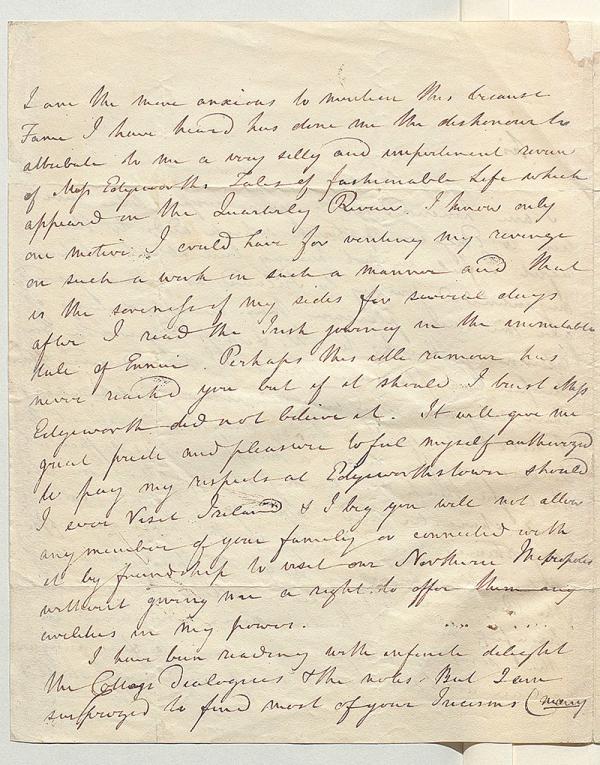 I am the more anxious to mention this because
Fame I have heard has done me the dishonour to
attribute to me a very silly and impertinent review
of Miss Edgeworths Tales of fashionable Life which
appeared in the Quarterly Review. I know only
one motive I could have for venting my revenge
on such a work in such a manner and that
is the soreness of my sides for several days
after I read the Irish journey in the inimitable
tale of Ennui. Perhaps this idle rumour has
never reached you but if it should I trust Miss
Edgeworth did not believe it. It will give me
great pride and pleasure to feel myself authorized
to pay my respects at Edgeworthstown should
I ever visit Ireland & I beg you will not allow
any member of your family or connected with
it by friendship to visit our Northern Metropolis
without giving me a right to offer them any
civilities in my power.
I have been reading with infinite delight
the Cottage Dialogues & the notes. But I am
surprized to find most of your Iricisms (many